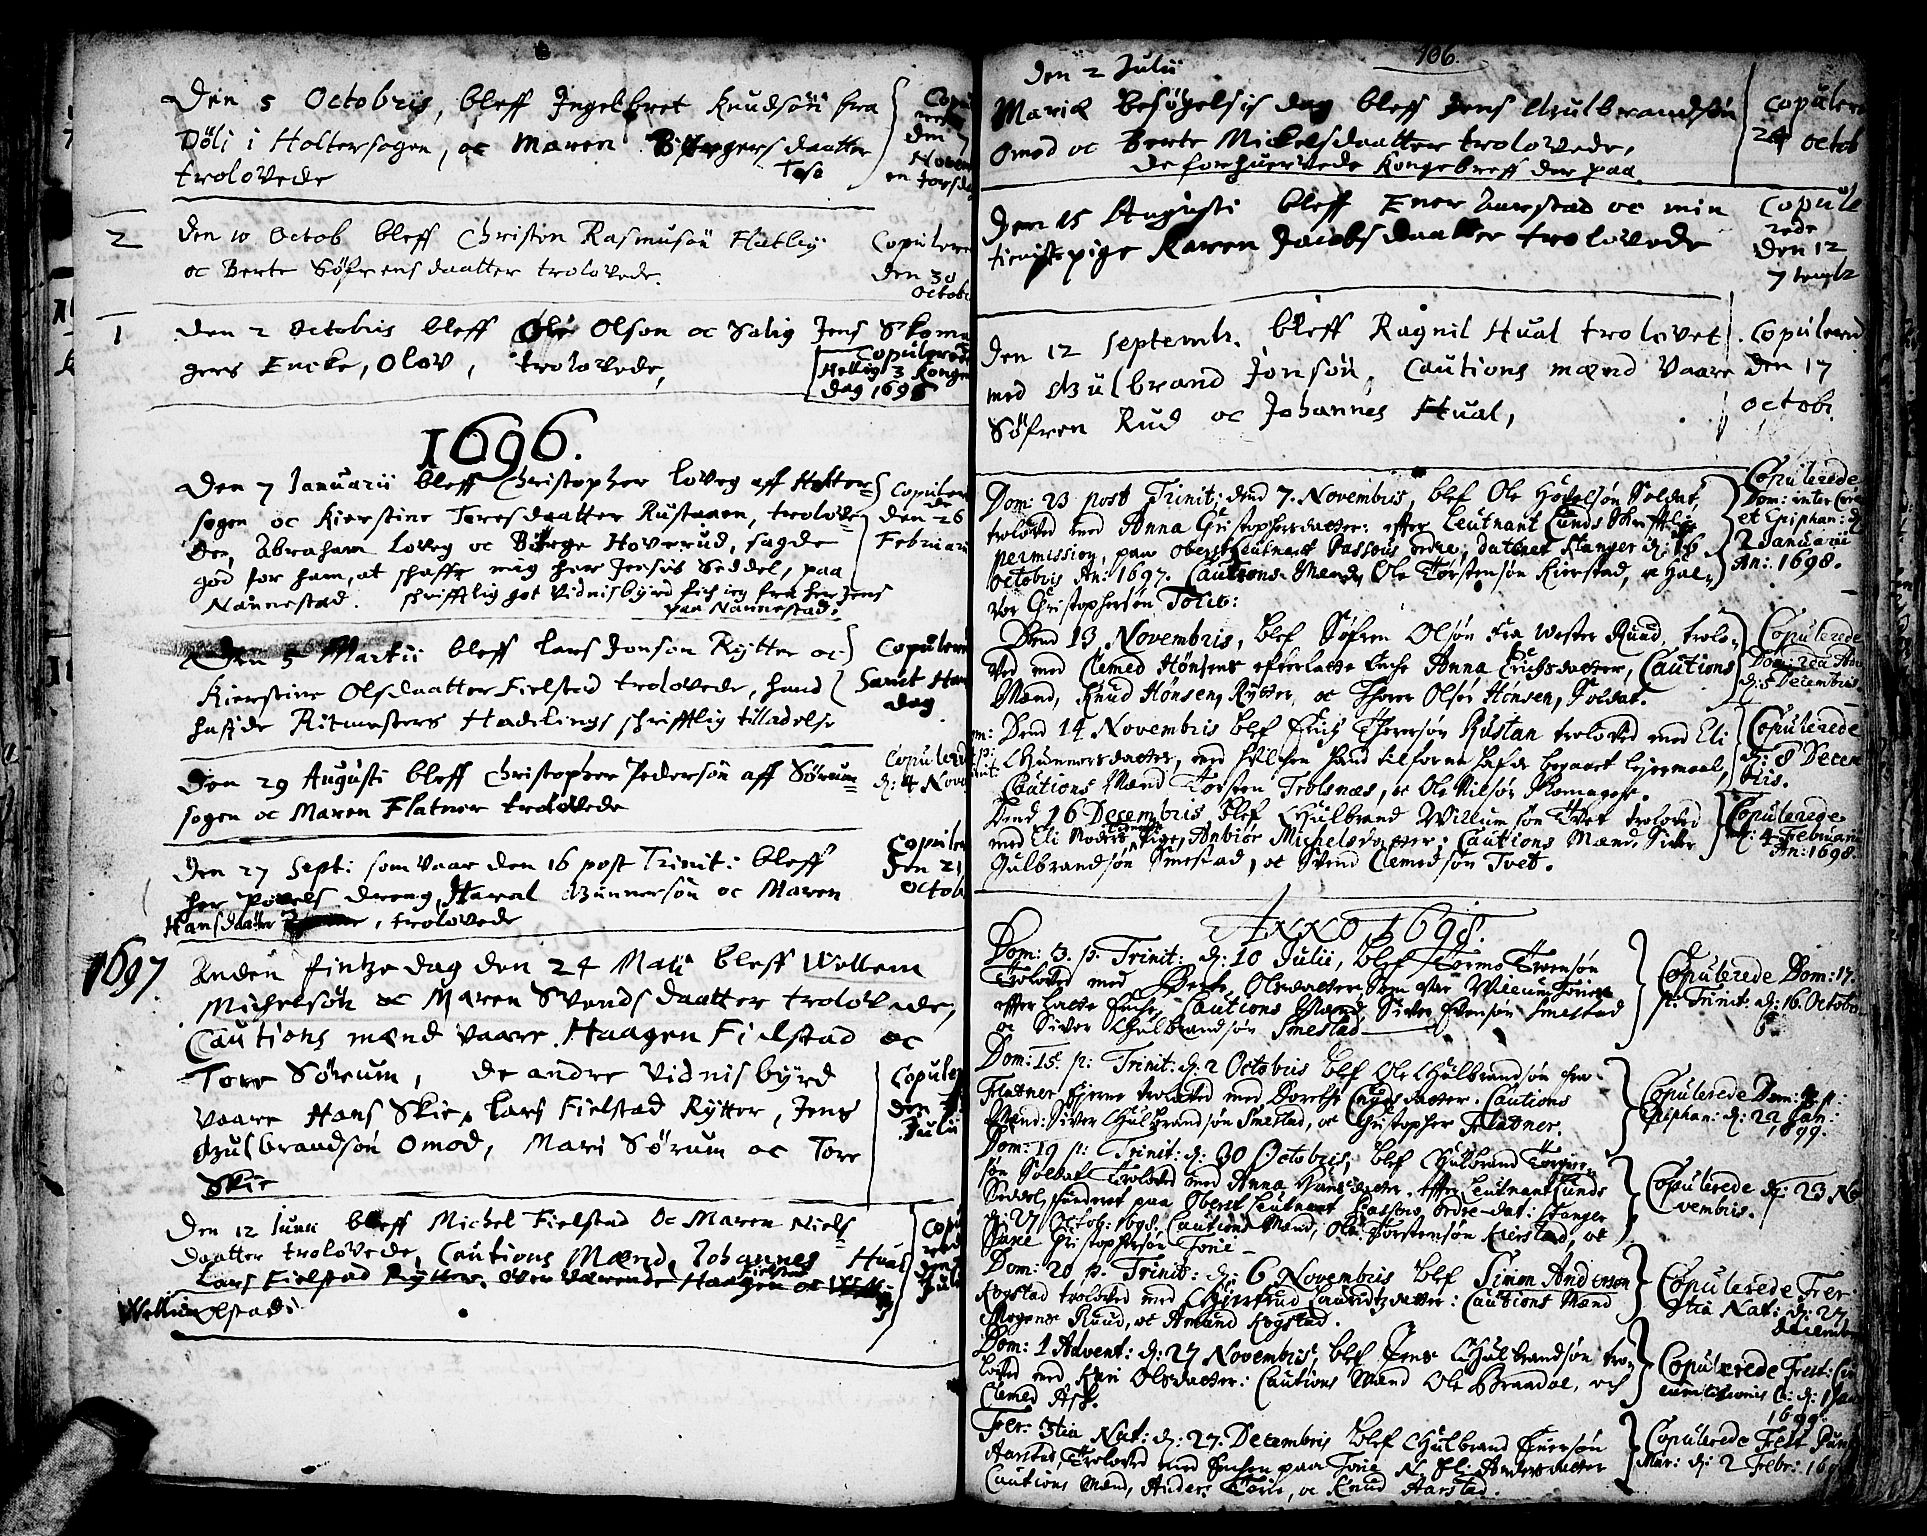 Den 5 Octobris, bleff Ingelbret Knudsön fra
Döli i Holtersogen, oc Maren Börgersdaatter
trolovede Tose
Copu
den 7
Novem
en torsda
2
Den 10 Octob bleff Christen Rasmusön Flatby
oc Berte Söfrensdaatter trolovede.
Copulere
den 30
Octob
1
Den 2 Octobris bleff Ole Olson oc Salig Jens Skoma
gers Encke, Olov, trolovede,
Copulered
Hellig 3 Konge
dag 1696
1696.
Den 7 Januarii bleff Christopher Loveg aff Holter
sogen oc Kierstine Toresdaatter Rustaaen, trolove
den, Abraham Loveg oc Börge Hoverud, sagde
god for ham, at skaffe mig her Jensis Seddel, paa
Nannestad. skrifftlig got Vidnisbyrd fick ieg fra her Jens
paa Nannestad.
Copulere
den 26
Februari
Den 5 Martii bleff Lars Jonson Rytter oc
Kierstine Olsdaatter Fielstad trolovede, hand
hafde Ritmesters Haderlings skrifftlig tilladelse
Copulere
Sanct Han
dag
Den 29 Augusti bleff Christopher Pedersön aff Sörum
sogen oc Maren Flatner trolovede
Copulered
d: 4 Nove
Den 27 Sept: som vaar den 16 post Trinit: bleff
her Povels dreng, Haral Gunnersön oc Maren
Hansdaatter , trolovede
Copuler
den 21
Octob
1697
Anden Pintze dag den 24 Maii bleff Wellem
Michelsön oc Maren Svendsdaatter trolovede,
Cautions mænd vaare Haagen Fielstad oc
Tore Sörum, de andre Vidnisbyrd
vaare Hans Skie, Lars Fielstad Rytter, Jens
Gulbrandsön Omod, Mari Sörum oc Tore
Skie
Copuler
den
Julii
Den 12 Junii bleff Michel Fielstad oc Maren Niels
daatter trolovede, Cautions Mænd, Johannes Hual
Lars Fielstad Rytter. Over værende Haagen Fielstad oc
Wellum Olstad.
Copu
rede
den
Juli
106.
Den 2 Julii
Mariæ Besögelsis dag bleff Jens Gulbrandsön
Omod oc Berte Mickelsdaatter trolovede,
de forhvervede Kongebreff der paa
Copulere
24 Octob
Den 15 Augusti bleff Ener Aarstad oc min
tienistepige Karen Jacobsdaatter trolovede
Copule
rede
den 12
7 temb
Den 12 Septemb. bleff Ragnil Hual trolovet
med Gulbrand Jonsön, Cautions mænd vaare
Söfren Rud oc Johannes Hual,
Copulered
den 17
Octob.
Dom: 23 post Trinit: dend 7. Novembris, blef Ole Hovelsön Soldat,
troloved med Anna Christophersdatter: efter Leutnant Lunds Skrifftlige
permission, paa Oberst Leutnant Passous ordre, dateret Stanger d: 16
Octobris An: 1697. Cautions-Mænd, Ole Torstensön Kierstad, oc Hal
vor Christophersön Tolit:
Copulerede
Dom: inter Circ
et Epiphan: d.
2 Januarii
An: 1698.
Dend 13 Novembris, blef Söfren Olsön fra Vester Ruud, trolo
ved med Clemed Hönsens efterlatte Enche Anna Erichsdatter, Cautions
Mænd, Knud Hönsen, Rytter, oc Thorer Olsön Hönsen, Soldat.
Copulerede
Dom: 2da Adv
d: 5 Decembris
Dend 14 Novembris blef Erich Thorersön Rustan troloved med Eli
Gunnersdatter, med hvilchen hand tilforne hafde begaaet leyermaal,
Cautions Mænd Torsten Trolsnæs, oc Ole Nilsön Skomager.
Copulerede
d: 8 Decem
bris.
Dend 16 Decembris, blef Gulbrand Willumsön Tvet troloved
med Eli Pige, Anbiör Michelsdatter: Cautions Mænd, Siver
Gulbrandsön Smestad, oc Svend Clemedsön Tvet.
Copulerede
d: 4 Februarii
An: 1698.
Anno 1698.
Dom: 3. p. Trinit: d: 10 Julii, blef Tormo Svensön
Troloved med Berte Olsdatter Som var Willum Tories
efterlatte Enche, Cautions Mænd Siver Evensön Smestad
oc Siver Gulbrandsön Smestad
Copulerede Dom: 17.
p. Trinit: d: 16. Octobr
Dom: 15. p: Trinit: d: 2 Octobris blef Ole Gulbrandsön fra
Fladner Eierne troloved med Dorethe Knudsdatter. Cautions
Mænd: Siver Gulbrandsön Smestad, oc Christopher Fladner.
Copulerede Dom: p:
Epiphan: d: 22 Jan:
1699.
Dom: 19 p: Trinit: d: 30 Octobris, blef Gulbrand Torgiers
sön Soldat Troloved med Anna Hansdatter. efter Leutnant Lunds
Seddel, funderet paa Oberst Leutnant Passous Ordre dat: Stanger
d: 27 Octob: 1698. Cautions Mænd, Ole Torstensön Kierstad, oc
Saxe Christophersön Torie
Copulerede d: 23 No
vembris.
Dom: 20 p. Trinit: d: 6 Novembris blef Simen Andersön
Kogstad troloved med Giertrud Lauridtzdatter: Cautions Mænd
Mogens Ruud, oc Amund Kogstad.
Copulerede Fer:
3tia Nat: d: 27
Decembr
Dom: 1 Advent: d: 27 Novembris, blef Jens Gulbrandsön tro
loved med Kari Olsdatter: Cautions Mænd Ole Braadal, och
Clemed Ask.
Copulerede Fest: Cir
cumcisionis C: d: 1 Jan
1699.
Fer: 3tia Nat: d: 27. Decembris blef Gulbrand Enersön
Aarstad, Troloved med Enchen paa Torie N. Eli Andersdatter
Cautions Mænd, Anders Torie, oc Knud Aarstad.
Copulerede Fest Puri
Mar: d: 2 Febr: 169